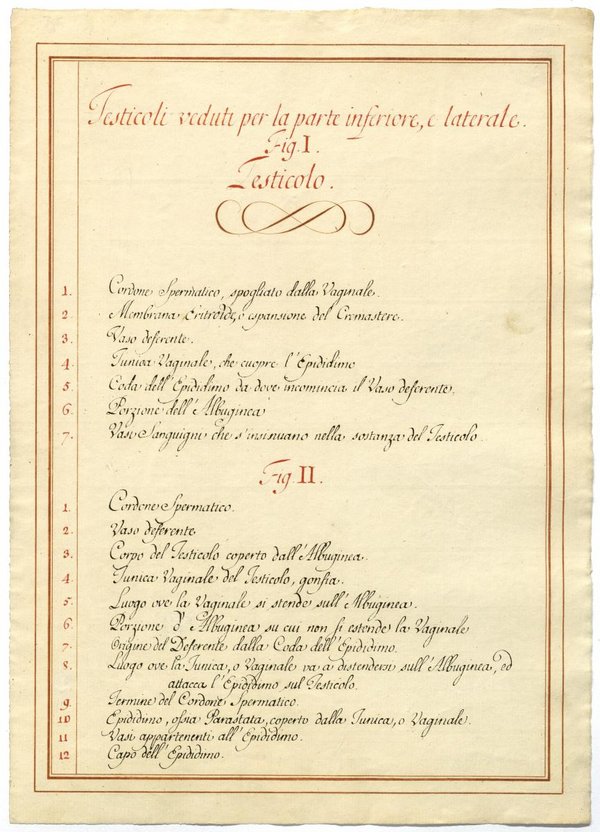 Testicoli veduti per la parte inferiore, e laterale.
Fig. I.
Testicolo.
1. Cordone Spermatico, spogliato dalla Vaginale.
2. Membrana Eritroide, o espansione del Cremastere.
3. Vaso deferente.
4. Tunica Vaginale, che cuopre l'Epididimo
5. Coda dell'Epididimo da dove incomincia il Vaso deferente.
6. Porzione dell'Albuginea
7. Vasi Sanguigni che s'insinuano nella sostanza del Testicolo.
Fig. II.
1. Cordone Spermatico.
2. Vaso deferente
3. Corpo del Testicolo coperto dall'Albuginea.
4. Tunica Vaginale del Testicolo, gonfia.
5. Luogo ove la Vaginale si stende sull'Albuginea.
6. Porzione d'Albuginea su cui non si estende la Vaginale
7. Origine del Deferente dalla Coda dell'Epididimo.
8. Luogo ove la Tunica, o Vaginale va a distendersi sull'Albuginea, ed
attacca l'Epididimo sul Testicolo.
9. Termine del Cordone Spermatico.
10 Epididimo, ossia Parastata, coperto dalla Tunica, o Vaginale.
11 Vasi appartenenti all'Epididimo.
12 Capo dell'Epididimo.